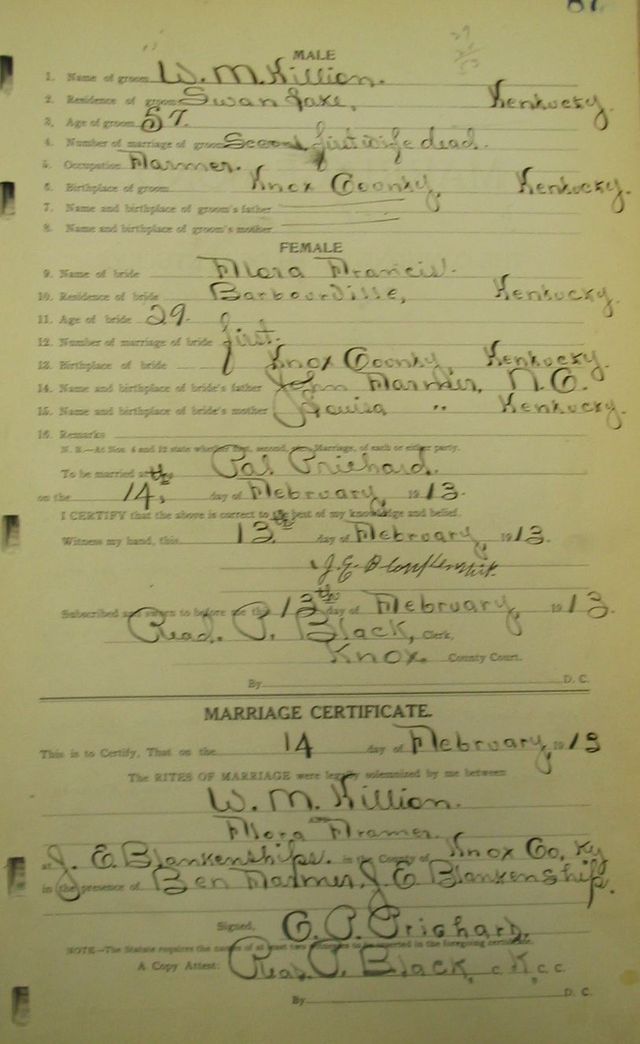 87
29
MALE
1. Name of groom W. M. Killion.
2. Residence of groom Swan Lake, Kentucky.
3. Age of groom 57.
4. Number of marriage of groom Second first wife dead.
5. Occupation Farmer.
6. Birthplace of groom Knox County, Kentucky.
7. Name and birthplace of groom's father
8. Name and birthplace of groom's mother
FEMALE
9. Name of bride Flora Francis.
10. Residence of bride Barbourville, Kentucky.
11. Age of bride 29.
12. Number of marriage of bride first.
13. Birthplace of bride Knox County, Kentucky.
14. Name and birthplace of bride's father John Farmer, N. C.
15. Name and birthplace of bride's mother Louisa " Kentucky.
16. Remarks
N. B.—At Nos. 4 and 12 state whether first, second, Marriage, of each or either party.
To be married at the Cal Prichard.
on the 14, day of February, 1913.
I CERTIFY that the above is correct to the best of my knowledge and belief.
Witness my hand, this 13th day of February, 1913.
J. E. Blankenship.
Subscribed and sworn to before me the 13th day of February, 1913.
Read. P. Black, Clerk,
Knox. County Court.
By D. C.
MARRIAGE CERTIFICATE.
This is to Certify, That on the 14 day of February, 1913
The RITES OF MARRIAGE were legally solemnized by me between
W. M. Killion.
AND
Flora Framer.
at J. E. Blankenships. in the County of Knox Co, Ky
in the presence of Ben Farmer, J E Blankenship.
Signed, C. P. Prichard.
NOTE—The Statute requires the names of at least two witnesses to be inserted in the foregoing certificate.
A Copy Attest: Read. P. Black, C. K, C. C.
By D. C.